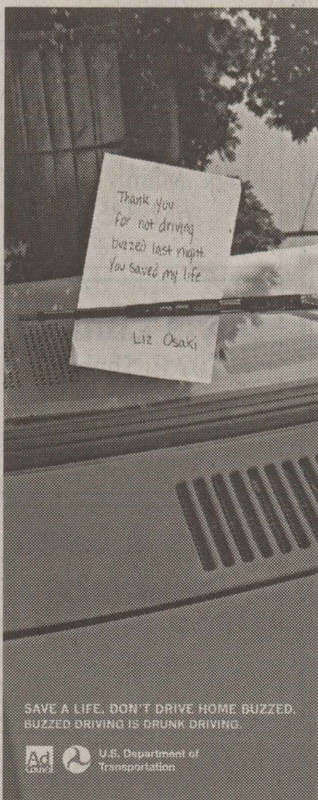 Thank you
for not driving
buzzed last night.
You saved my life
Liz Osaki
SAVE A LIFE. DON'T DRIVE HOME BUZZED.
BUZZED DRIVING IS DRUNK DRIVING.
Ad
COUNCIL
U.S. Department of
Transportation